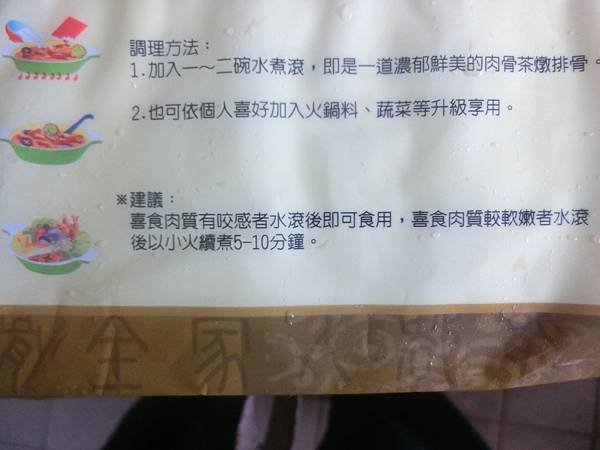 調理方法：
1.加入一～二碗水煮滾，即是一道濃郁鮮美的肉骨茶燉排骨。
2.也可依個人喜好加入火鍋料、蔬菜等升級享用。
※建議：
喜食肉質有咬感者水滾後即可食用，喜食肉質較軟嫩者水滾
後以小火續煮5-10分鐘。
全家